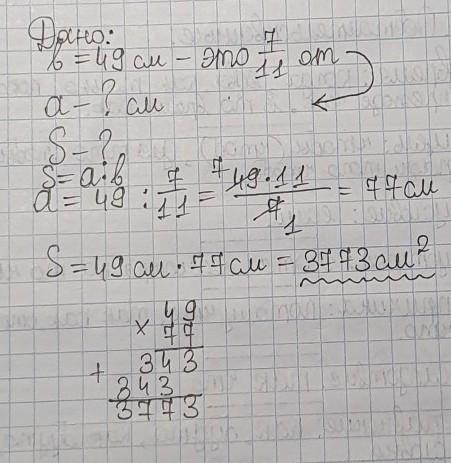 Дано:
b = 49 см - это 7/11 от
a - ? см
S - ?
S = a·b
a = 49 : 7/11 = 49·11/7 = 77 см
7
1
S = 49 см · 77 см = 3773 см²
49
× 77
343
+ 343
3773